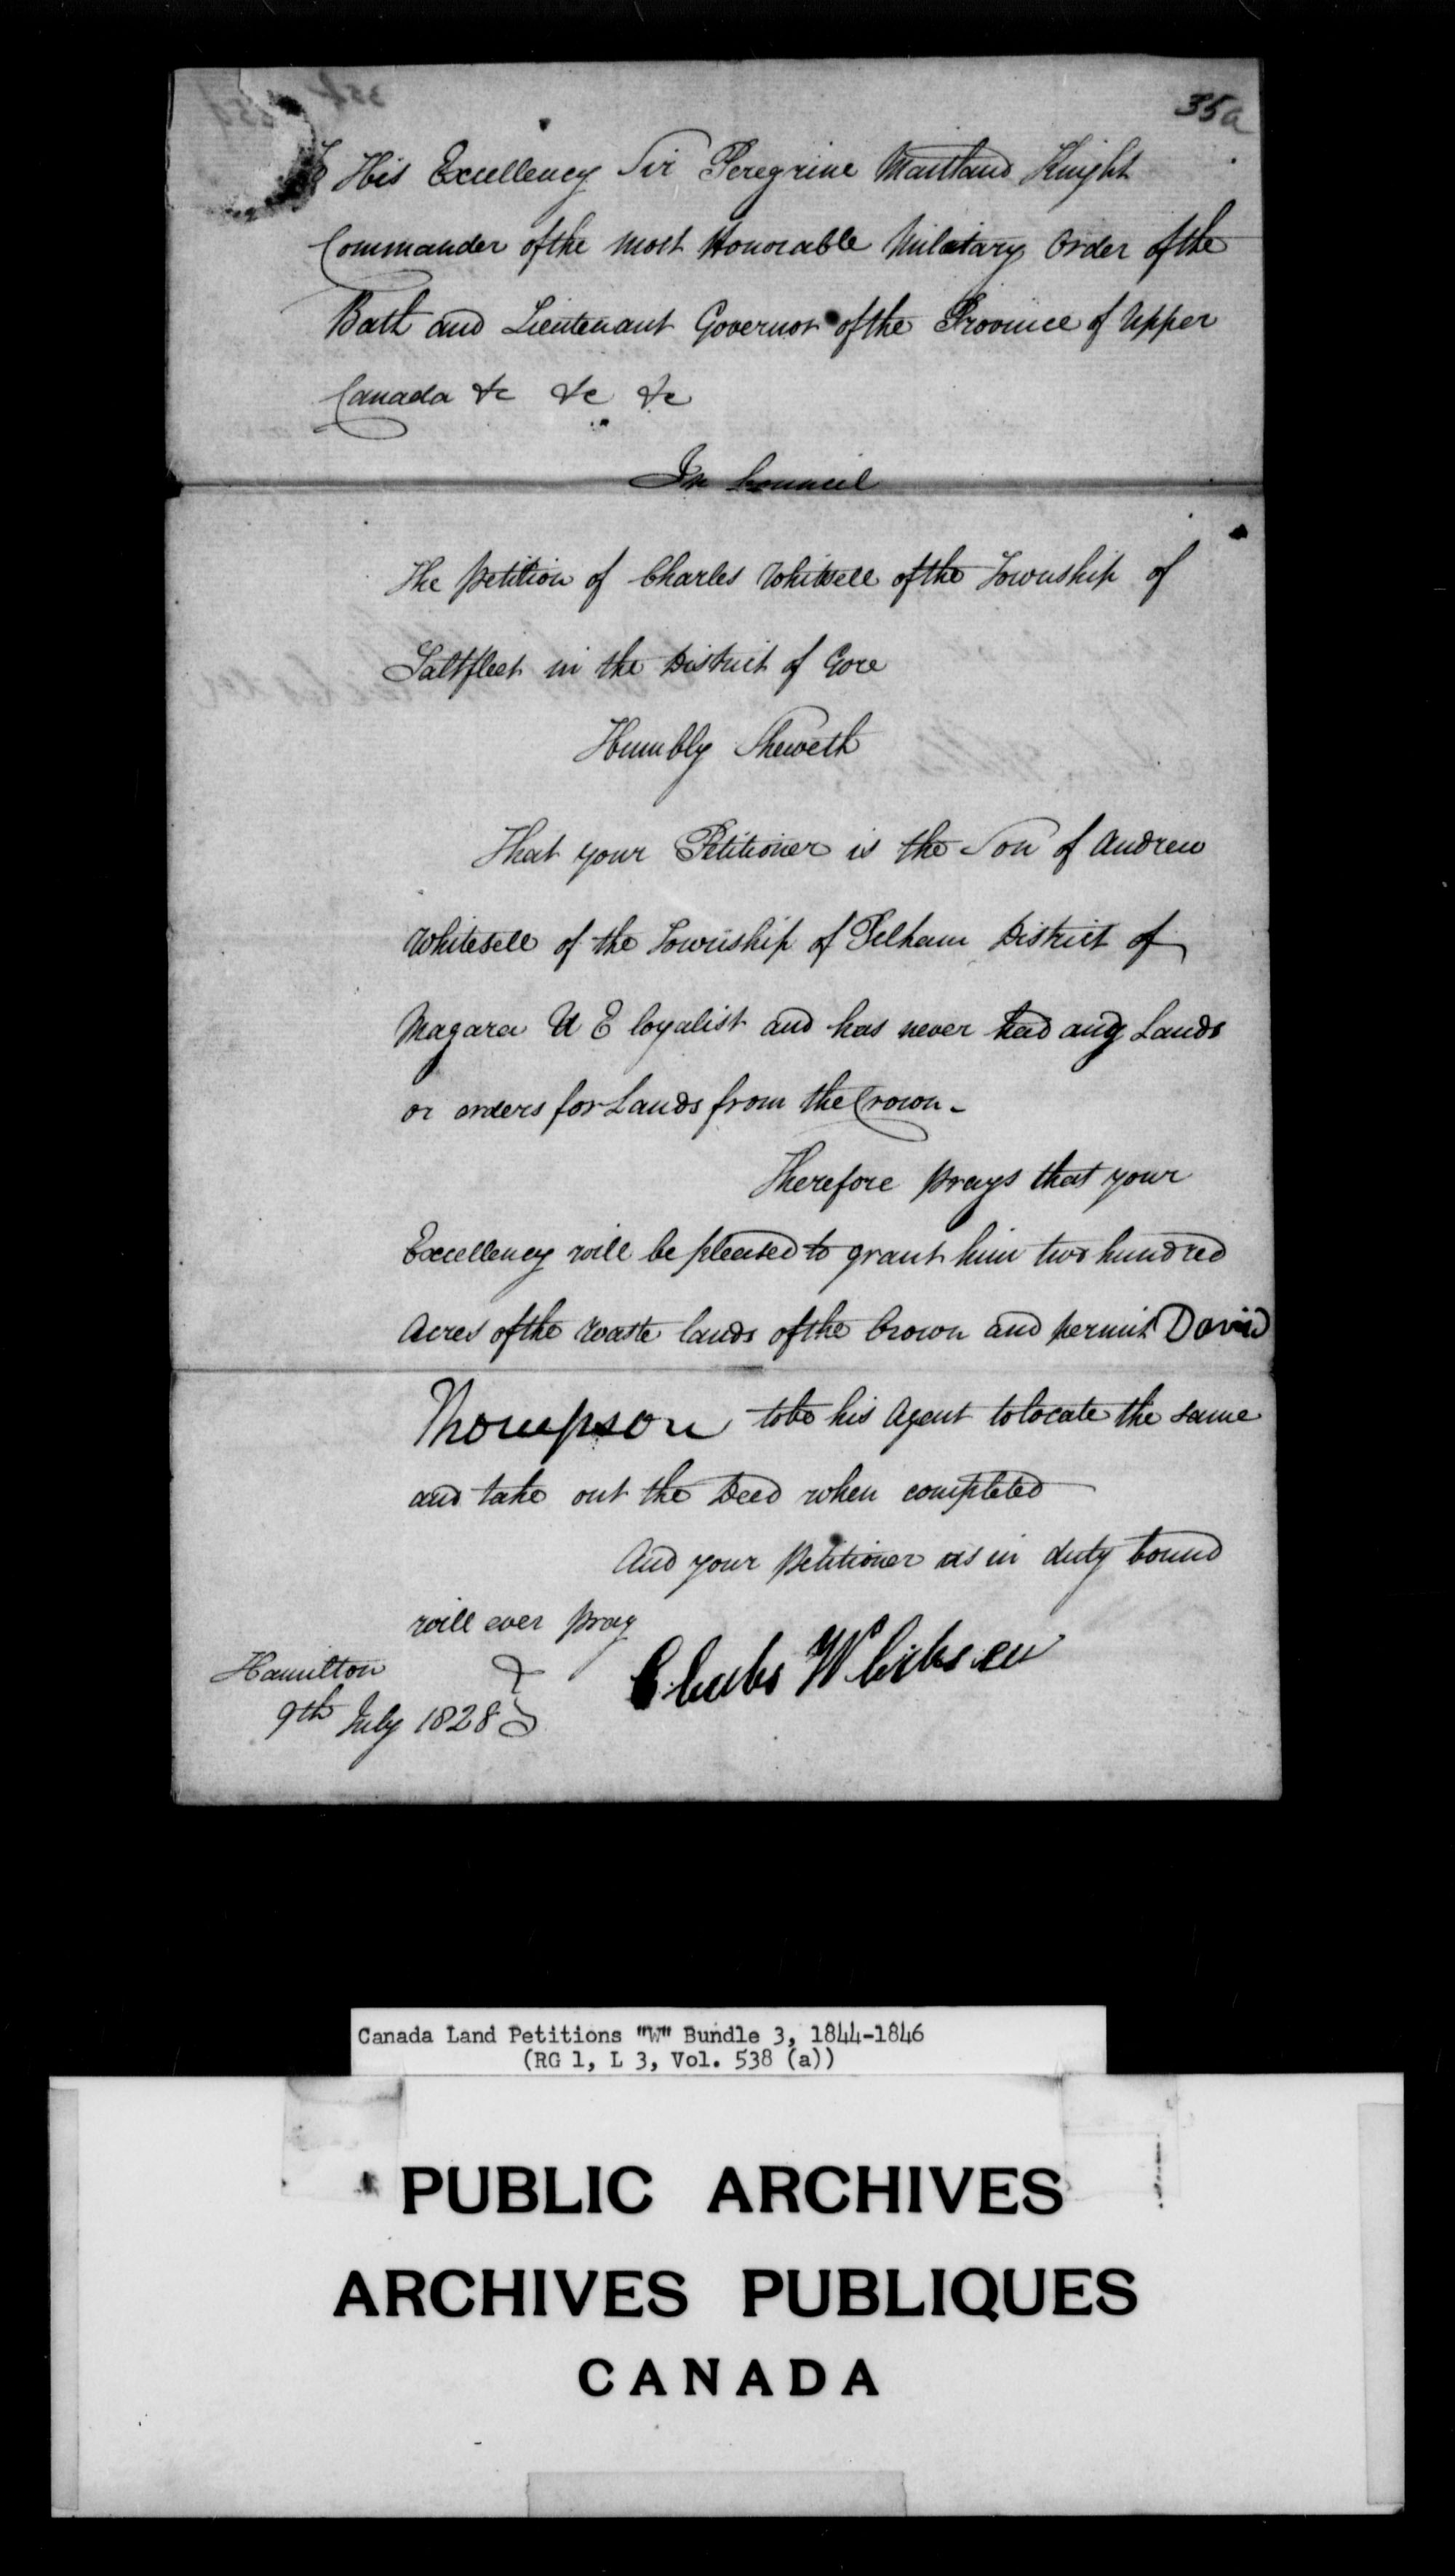 35a
To His Excellency Sir Peregrine Maitland Knight
Commander of the most Honorable Milatary Order of the
Bath and Lieutenant Governor of the Province of Upper
Canada &c &c &c
In Council
The petition of Charles Whitsell of the Township of
Saltfleet in the District of Gore
Humbly Sheweth
That your Petitioner is the Son of Andrew
Whitsell of the Township of Pelham District of
Niagara U E loyalist and has never had any Lands
or orders for Lands from the Crown -
Therefore prays that your
Excellency will be pleased to grant him two hundred
Acres of the waste lands of the Crown and permit David
Thompson to be his Agent to locate the same
and take out the Deed when completed
And your Petitioner as in duty bound
will ever pray
Hamilton
9th July 1828
Canada Land Petitions "W" Bundle 3, 1844-1846
(RG 1, L 3, Vol. 538 (a))
PUBLIC ARCHIVES
ARCHIVES PUBLIQUES
CANADA